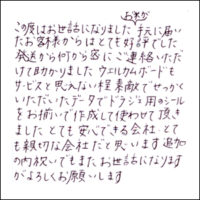 お米が
この度はお世話になりました 手元に届い
たお客様からはとても好評でした
発送から何から密にご連絡いただ
けて助かりました ウェルカムボードも
サービスと思えない程素敵でせっかく
いただいたデータでドラジェ用のシール
をお揃いで作成して使わせて頂き
ました とても安心できる会社、とて
も親切な会社だと思います 追加
の内祝いでもまたお世話になります
がよろしくお願いします